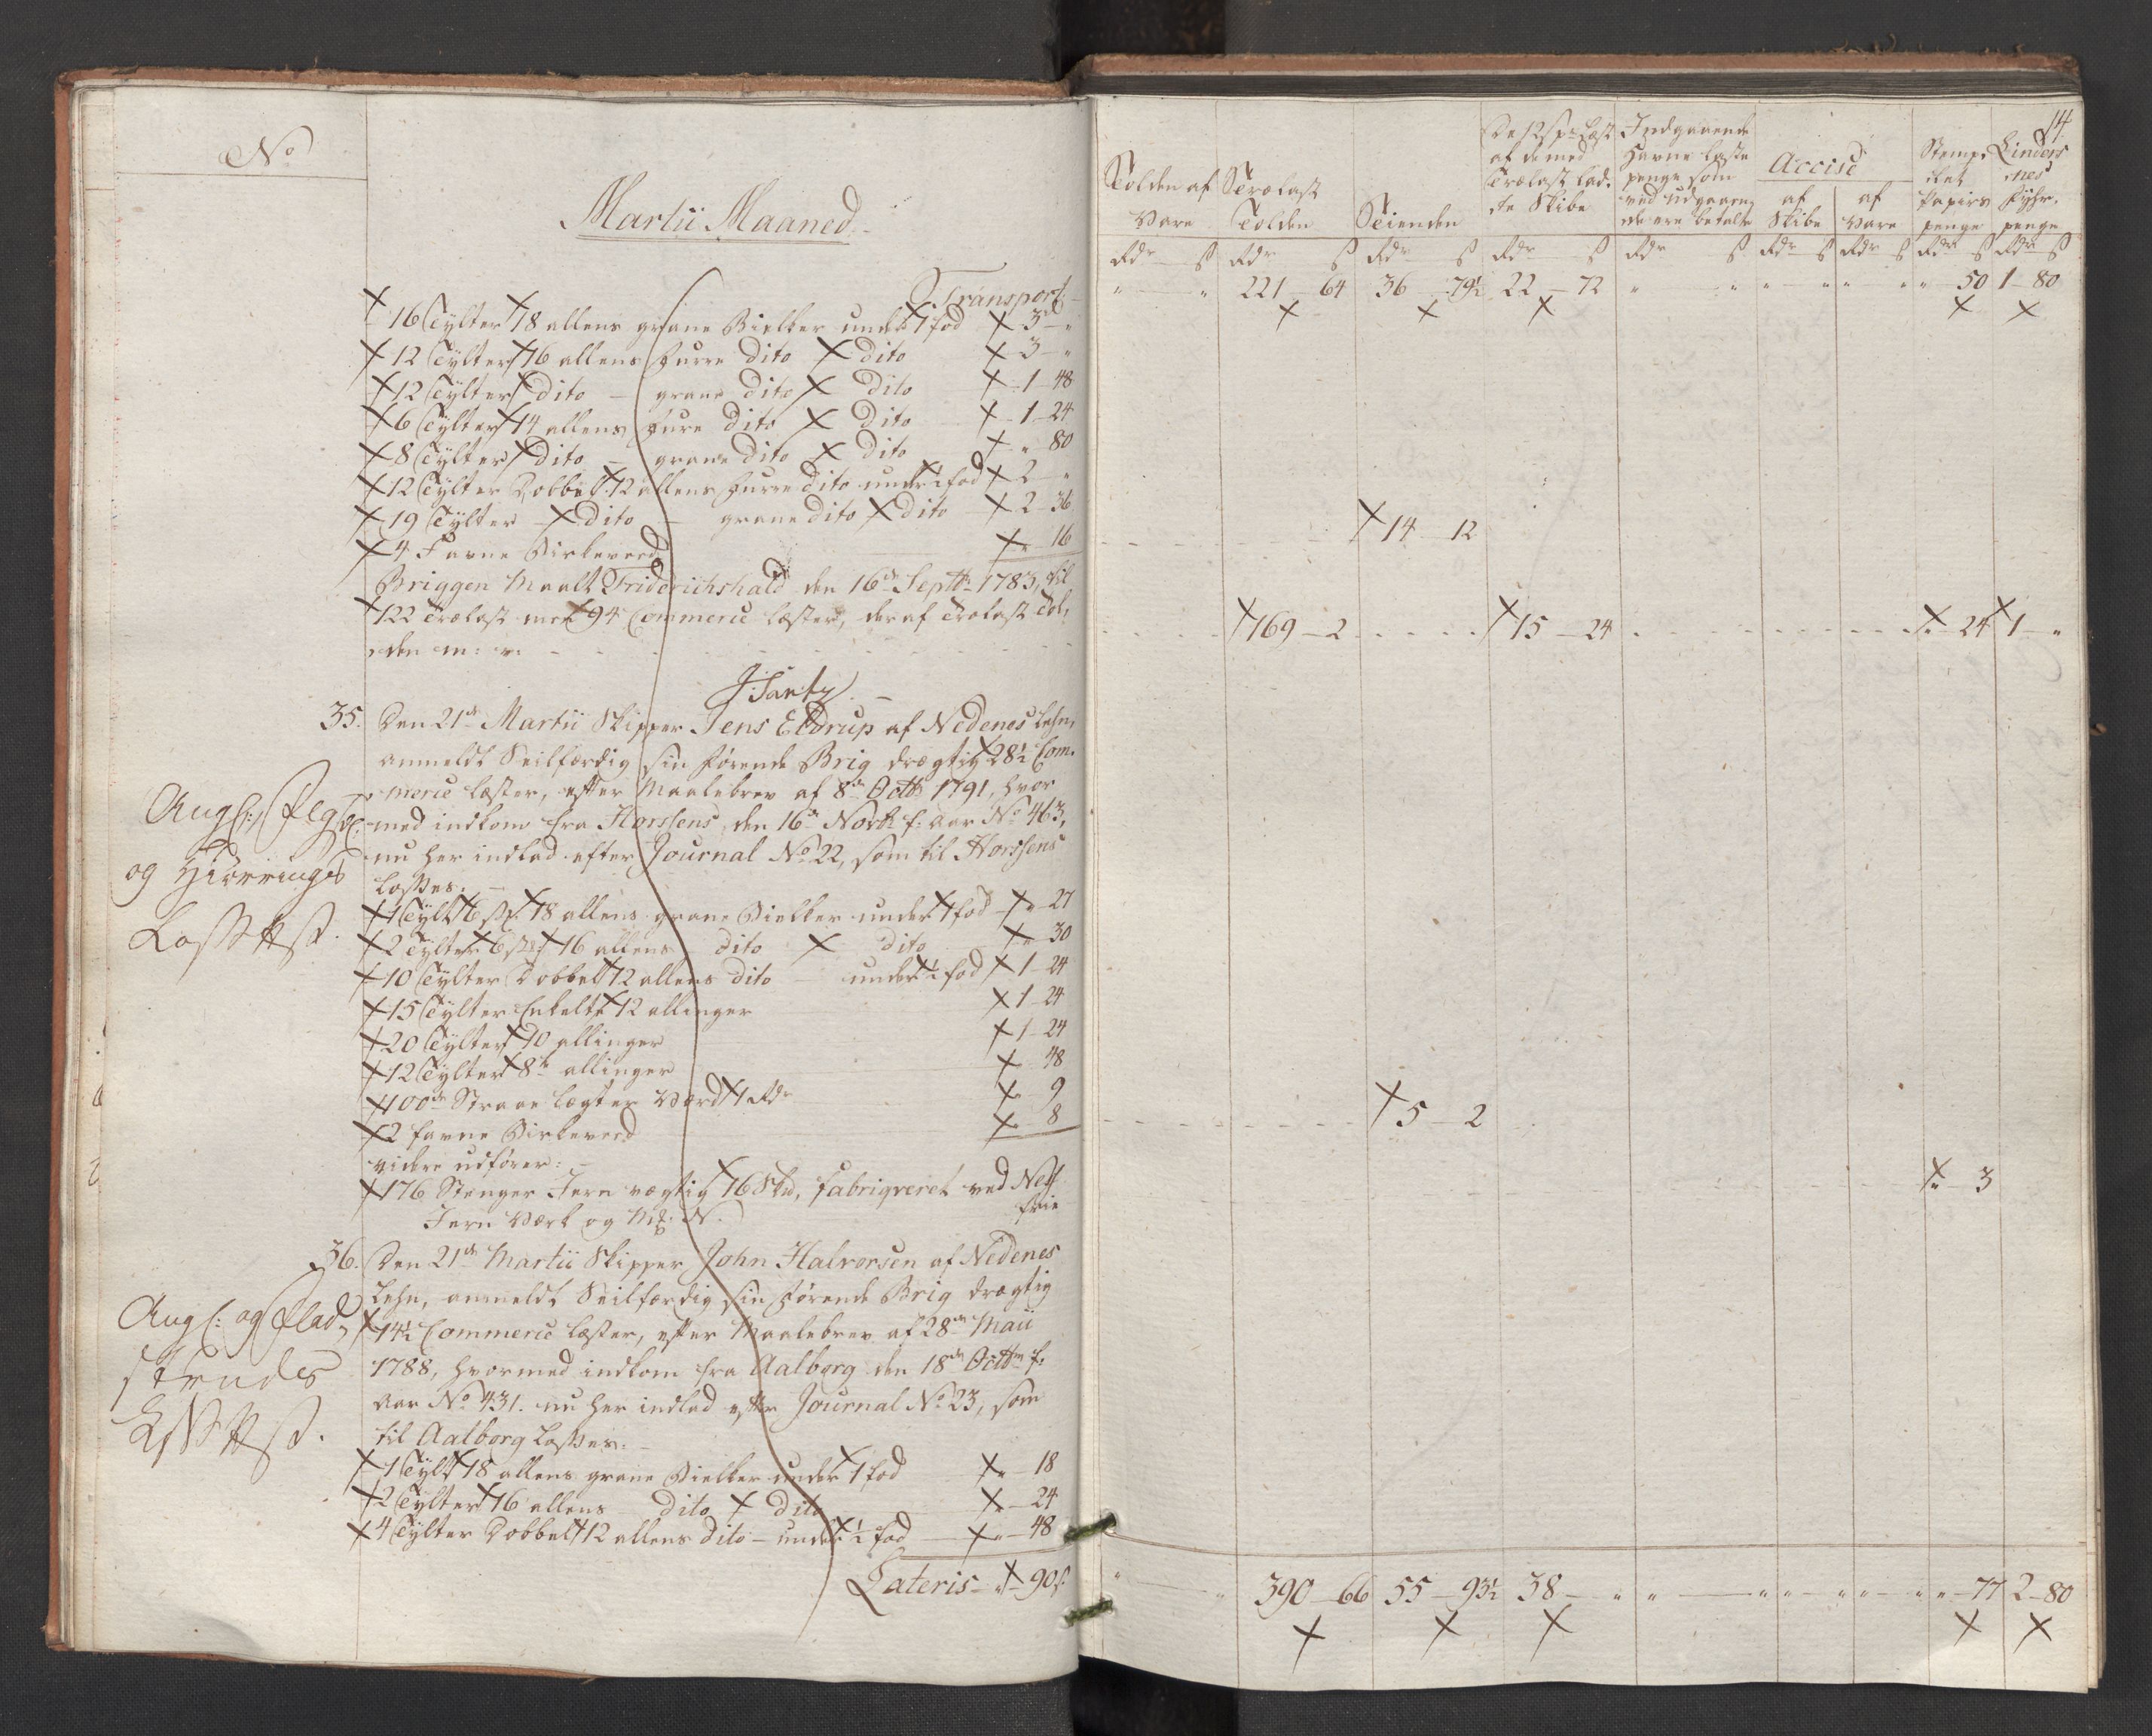 No
Martii Maaned.
Transport
16 Tylter 18 allens grane Bielker under 1 fod 3 "
12 Tylter 16 allens furre dito dito 3 "
12 Tylter dito - grane dito dito 1 48
6 Tylter 14 allens fure dito dito 1 24
8 Tylter dito - grane dito dito " 80
12 Tylter Dobbelt 12 allens furre dito under ½ fod 2 "
19 Tylter dito - grane dito dito 2 36
4 Favne Birkeveed " 16
Briggen Maalt Friderichshald den 16de Septbr 1783, til
122 Trælast men 94 Commerce Læster, deraf Trælast Tol,
den m: v:
35. Den 21de Martii Skipper Jens Eldrup af Nedenes Lehn,
anmeldt Seilfærdig sin førende Brig drægtig 28½ Com,
merce Læster, efter Maalebrev af 8de Octbr 1791, hvor
med indkom fra Horssens den 16de Novbr f: Aar No 463,
nu her indlad efter Journal No 22, som til Horssens
Losses.
og Hiørrings
1 Tylt 6 st 18 allens grane Bielker under 1 fod " 27
2 Tylter 6 st 16 allens dito dito " 30
10 Tylter Dobbelt 12 allens dito under ½ fod 1 24
15 Tylter Enkelte 12 allinger 1 24
20 Tylter 10 allinger 1 24
12 Tylter 8te allinger 48
100de Straae Lægter Værd 1 Rdr 9
2 favne Birkeveed 8
videre udfører:
176 Stænger Jern vægtig 16 Skd, fabriqveret ved Nes
Jern Værk og N. frie
36. Den 21de Martii Skipper John Halvorsen af Nedenes
Lehn, anmeldt Seilfærdig sin førende Brig drægtig
14½ Commerce Læster, efter Maalebrev af 28de Maii
1788, hvormed indkom fra Aalborg den 18de Octbr f:
Aar No 431. nu her indlad efter Journal No 23, som
til Aalborg Losses.
Angl: og Flad,
strands
1 Tylt 18 allens grane Bielker under 1 fod " 18
2 Tylter 16 allens dito dito " 24
4 Tylter Dobbelt 12 allens dito - under ½ fod " 48
Lateris " 90 s
14
Tolden af Vare
Trælast Tolden
Tienden
De 12 s pr Læst af de med Trælast lad, te Skibe
Indgaaende Havne Laste penge som ved Udgaaen, de ere betalte
Accise
af Skibe
af Vare
Stemp, let Papirs penge
Linders nes Fyhr, penge
Rdr s Rdr s Rdr s Rdr s Rdr s Rdr s Rdr s Rdr s Rdr s
" " 221 64 36 79½ 22 72 " " " " " " " 50 1 80
14 12
169 2 15 24 " 24 1 "
5 2
" 3
" " 390 66 55 93½ 38 " " " " " " " " 77 2 80